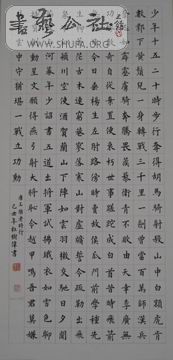 少年十五二十時步行奪得胡馬騎射殺山中白額虎肯
數鄴下黃鬚兒一身轉戰三千里一劍曾當百萬師漢兵
奮迅如霹靂虜騎奔騰畏蒺藜衛青不敗由天幸李廣無
功緣數奇自從棄置便衰朽世事蹉跎成白首昔時飛箭
無全目今日垂楊生左肘路旁時賣故侯瓜門前學種先
生柳蒼茫古木連窮巷寥落寒山對虛牖誓令疏勒出飛
泉不似潁川空使酒賀蘭山下陣如雲羽檄交馳日夕聞
節使三河募年少詔書五道出將軍試拂鐵衣如雪色聊
持寶劍動星文願得燕弓射大將恥令越甲鳴吾君莫嫌
舊日雲中守猶堪一戰立功勳
唐王維老將行
己丑年
書